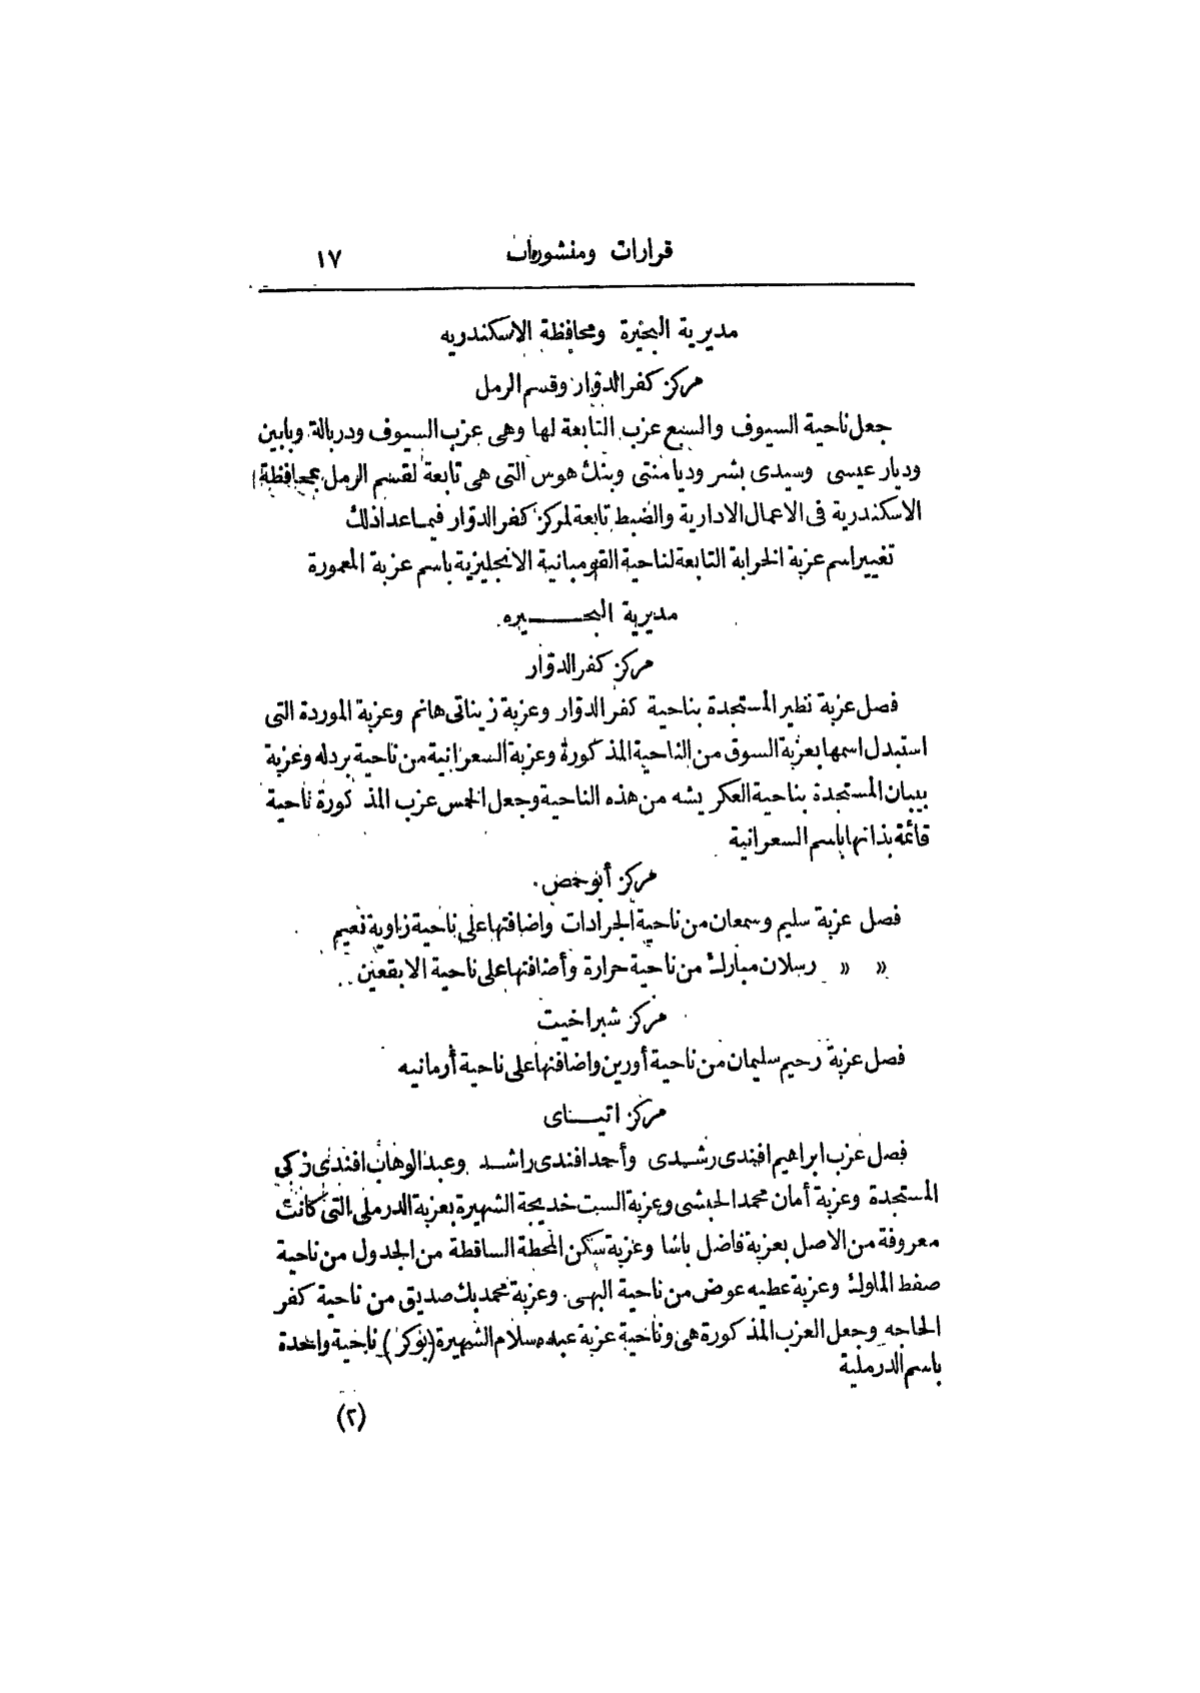 قرارات ومنشورات ١٧
مديرية البحيرة ومحافظة الاسكندريه
مركز كفر الدوّار وقسم الرمل
جعل ناحية السيوف والسبع عزب التابعة لها وهى عزب السيوف ودربالة وبابين
وديار عيسى وسيدى بشر وديامنتى وبنك هوس التى هى تابعة لقسم الرمل بمحافظة
الاسكندرية فى الاعمال الادارية والضبط تابعة لمركز كفر الدوّار فيما عدا ذلك
تغيير اسم عزبة الخرابة التابعة لناحية القومبانية الانجليزية باسم عزبة المعمورة
مديرية البحيره
مركز كفر الدوّار
فصل عزبة نظير المستجدة بناحية كفر الدوّار وعزبة زيناتى هانم وعزبة الموردة التى
استبدل اسمها بعزبة السوق من الناحية المذكورة وعزبة السعرانية من ناحية بردله وعزبة
بيبان المستجدة بناحية العكريشه من هذه الناحية وجعل الخمس عزب المذكورة ناحية
قائمة بذاتها باسم السعرانية
مركز أبو حمص
فصل عزبة سليم وسمعان من ناحية الجرادات واضافتها على ناحية زاوية نعيم
» » رسلان مبارك من ناحية حرارة وأضافتها على ناحية الابقعين
مركز شبراخيت
فصل عزبة رحيم سليمان من ناحية أورين واضافتها على ناحية أرمانيه
مركز اتيـاى
فصل عزب ابراهيم افندى رشدى وأحمد افندى راشد وعبد الوهاب افندى زكى
المستجدة وعزبة أمان محمد الحبشى وعزبة الست خديجة الشهيرة بعزبة الدرملى التى كانت
معروفة من الاصل بعزبة فاضل باشا وعزبة سكن المحطة الساقطة من الجدول من ناحية
صفط الملوك وعزبة عطيه عوض من ناحية البهى وعزبة محمد بك صديق من ناحية كفر
الحاجه وجعل العزب المذكورة هى وناحية عزبة سلام الشهيرة (بوكر) ناحية واحدة
باسم الدرملية
(٢)